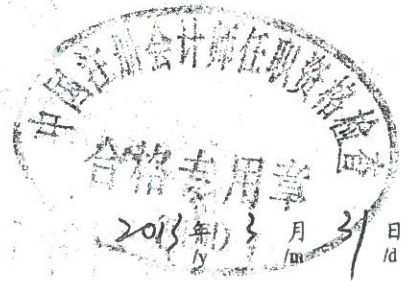 中国注册会计师任职资格检查
合格专用章
2013年3月31日
/y /m /d